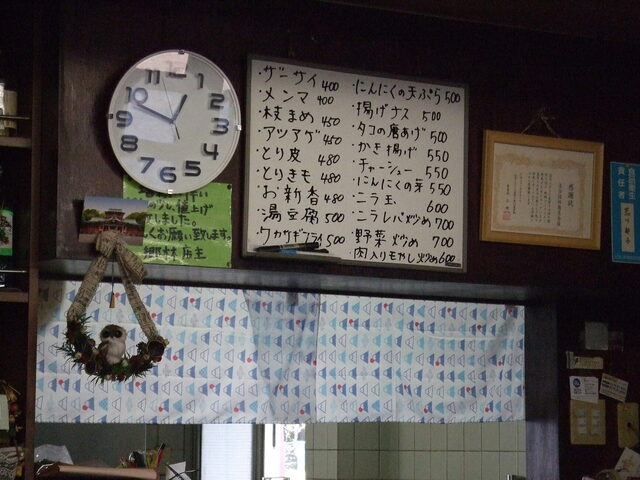 12
1
2
3
4
5
6
7
8
9
10
11
・ザーサイ 400
・メンマ 400
・枝まめ 450
・アツアゲ 450
・とり皮 480
・とりきも 480
・お新香 480
・湯豆腐 500
・ワカサギフライ 500
・にんにくの天ぷら 500
・揚げナス 500
・タコの唐あげ 500
・かき揚げ 550
・チャーシュー 550
・にんにくの芽 550
・ニラ玉 600
・ニラレバ炒め 700
・野菜炒め 700
・肉入りもやし炒め 600
値上げ
しました。
くお願い致します。
店主
感謝状
食品衛生
責任者